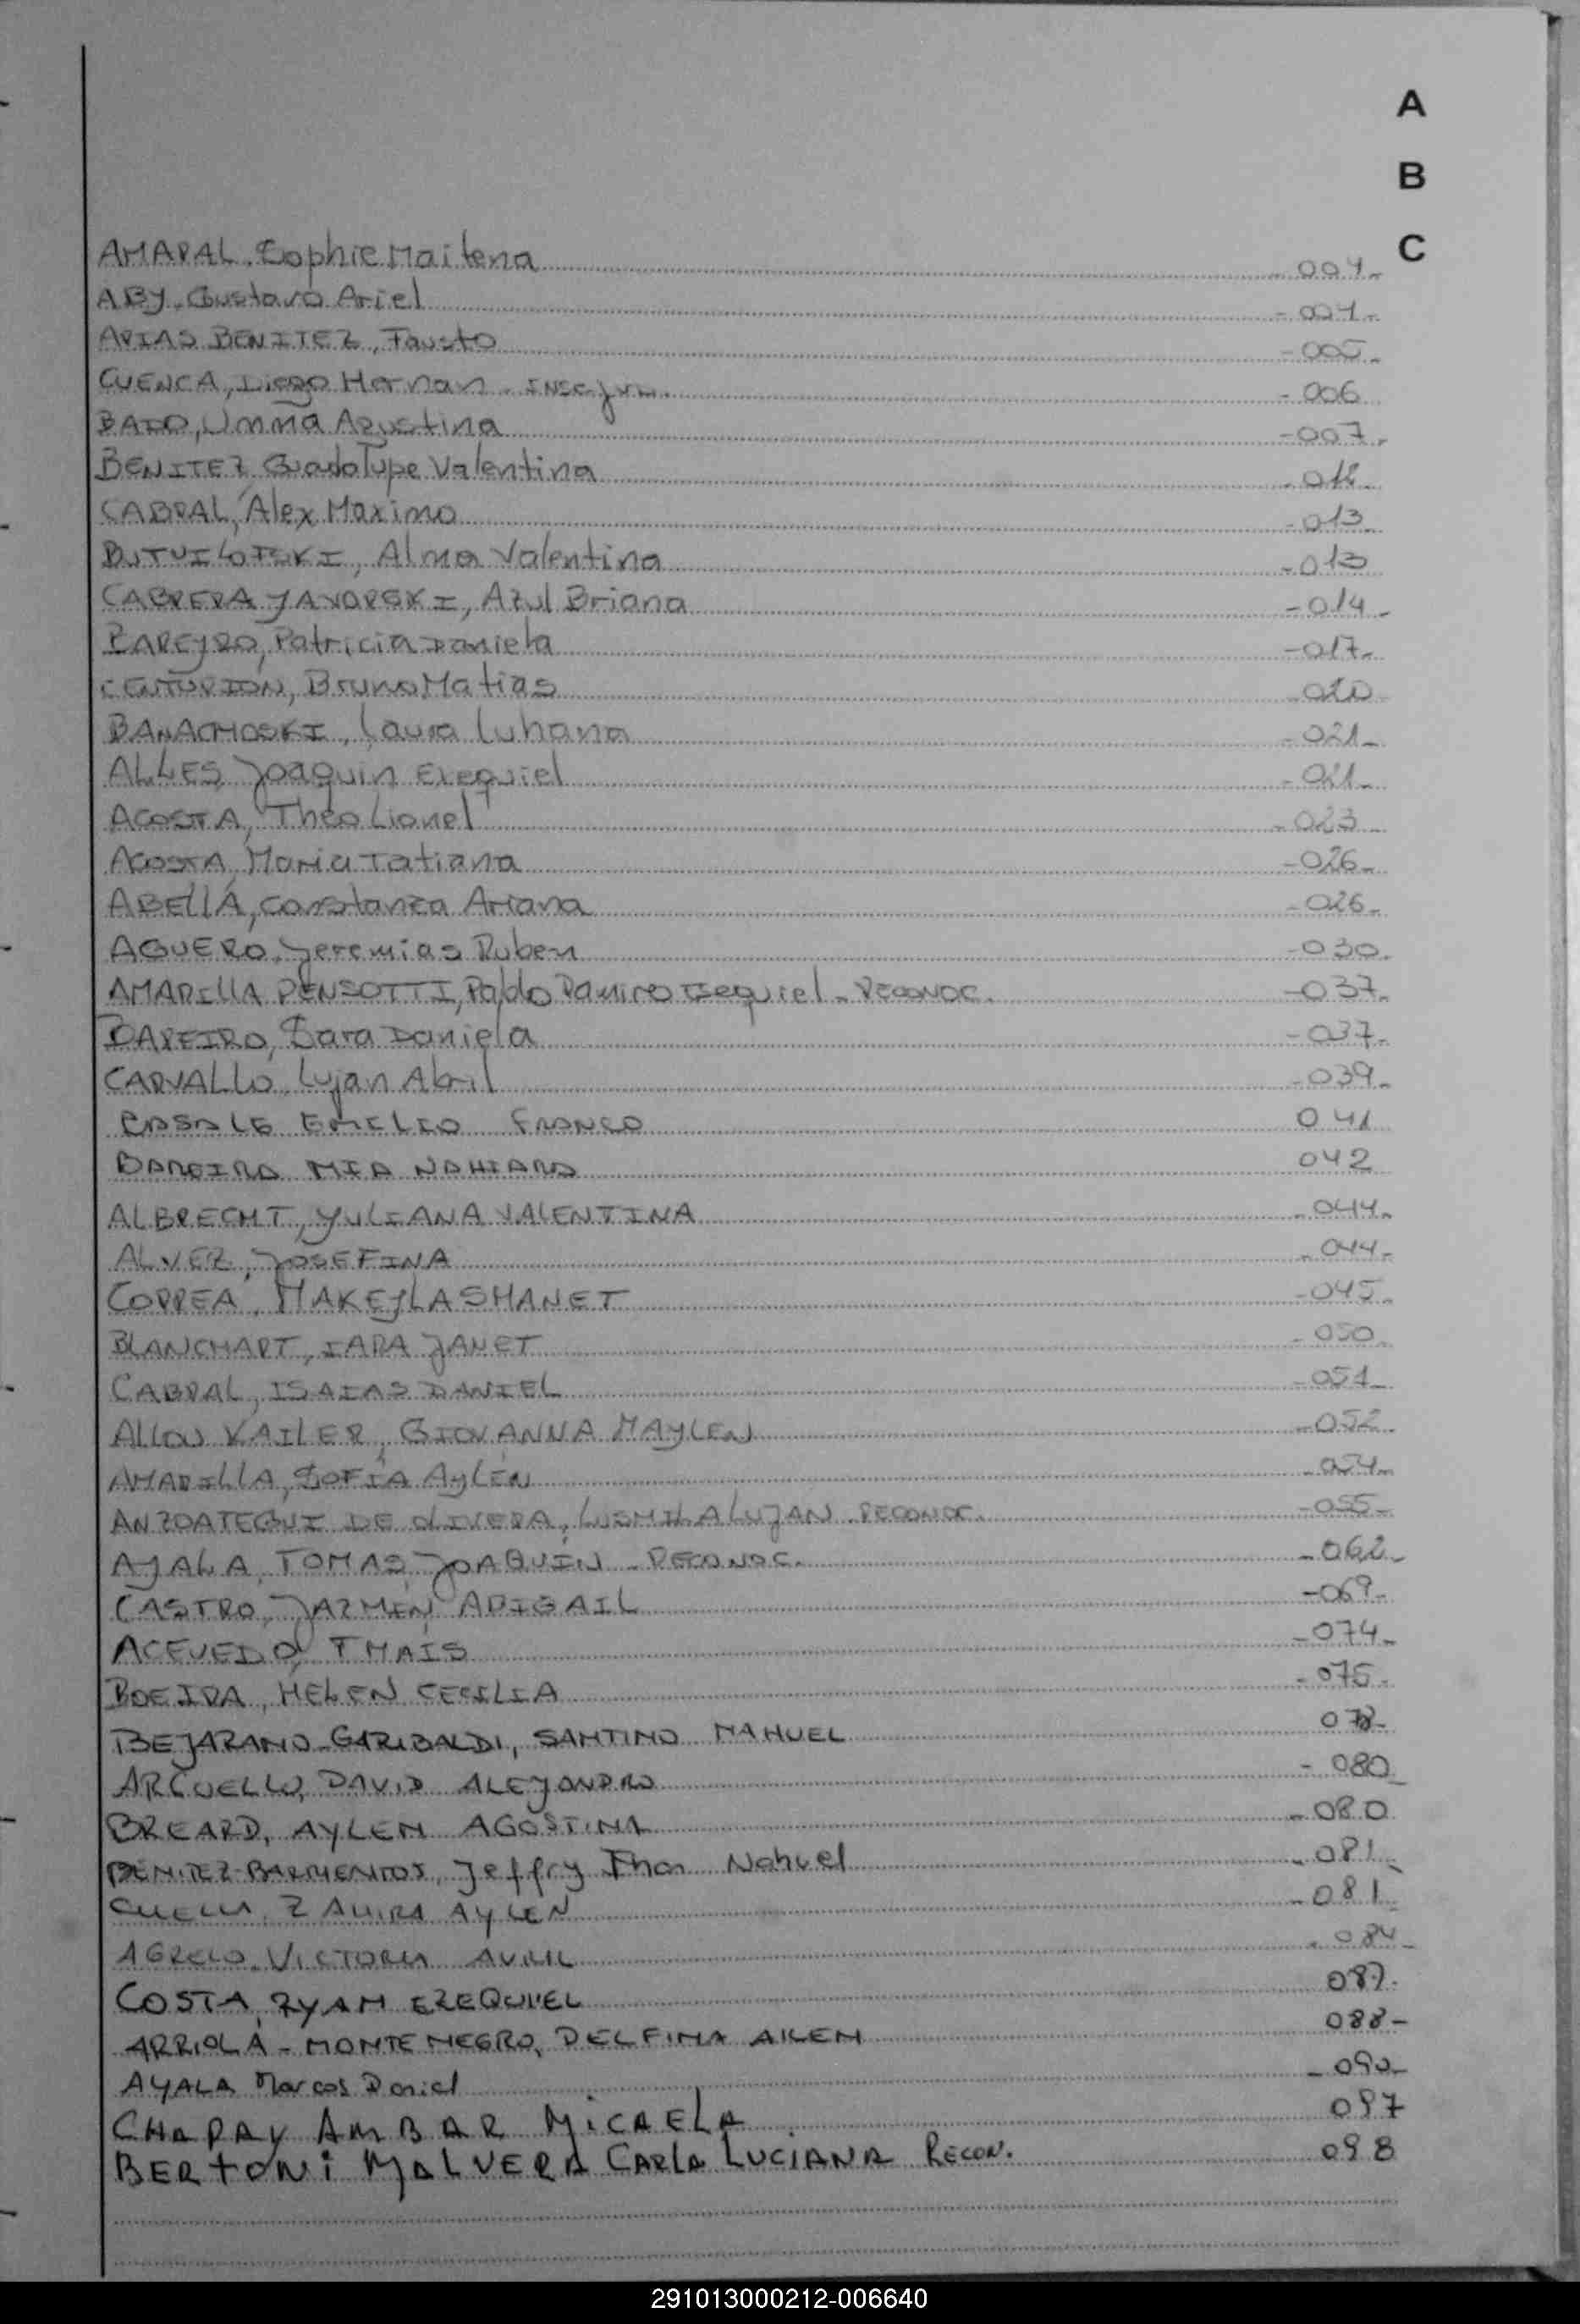 A
B
C
AMARAL, Sophie Maitena - 004 -
ABY, Gustavo Ariel - 004 -
ARIAS BENITEZ, Fausto - 005 -
CUENCA, Diego Hernan - 006
BAIO, Umma Agustina - 007 -
BENITEZ Guadalupe Valentina - 012 -
CABRAL, Alex Maximo - 013 -
BUTVILOFSKI, Alma Valentina - 013
CABRERA JAVORSKI, Azul Briana - 014 -
BAREYRO, Patricia Daniela - 017 -
CENTURION, Bruno Matias - 020 -
BANACHOSKI, Laura Luhana - 021 -
ALLES, Joaquin Ezequiel - 021 -
ACOSTA, Theo Lionel - 023 -
ACOSTA, Maria Tatiana - 026 -
ABELLÁ, Constanza Ariana - 026 -
AGUERO, Jeremias Ruben - 030 -
AMARILLA PENSOTTI, Pablo Ramiro Ezequiel - RECONOC. - 037 -
BAREIRO, Sara Daniela - 037 -
CARVALLO, Lujan Abril - 039 -
CASALE EMILIO FRANCO 041
BAREIRO MIA NAHIARA 042
ALBRECHT, YULIANA VALENTINA - 044 -
ALVEZ, JOSEFINA - 044 -
CORREA, MAKEYLA SHANET - 045 -
BLANCHART, IARA JANET - 050 -
CABRAL, ISAIAS DANIEL - 051 -
ALLOU KAILER, GIOVANNA MAYLEN - 052 -
AMARILLA, SOFÍA AYLÉN - 054 -
ANZOATEGUI DE OLIVERA, LUSMILA LUJAN - RECONOC. - 055 -
AYALA, TOMAS JOAQUIN - RECONOC. - 062 -
CASTRO, JAZMIN ABIGAIL - 069 -
ACEVEDO, THAIS - 074 -
BOEIRA, HELEN CECILIA - 075 -
BEJARANO-GARIBALDI, SANTINO NAHUEL 078 -
ARGUELLO, DAVID ALEJANDRO - 080 -
BREARD, AYLEN AGOSTINA - 080
BENITEZ-BARRIENTOS, Jeffry Jhon Nahuel - 081 -
ZAHIRA AYLEN - 081 -
AGRELO, VICTORIA AVRIL - 084 -
COSTA, RYAM EZEQUIEL 087 -
ARRIOLA - MONTENEGRO, DELFINA AILEN 088 -
AYALA Marcos Daniel - 090 -
CHAPAY AMBAR MICAELA 097
BERTONI MALVERA CARLA LUCIANA RECON. 098
291013000212-006640